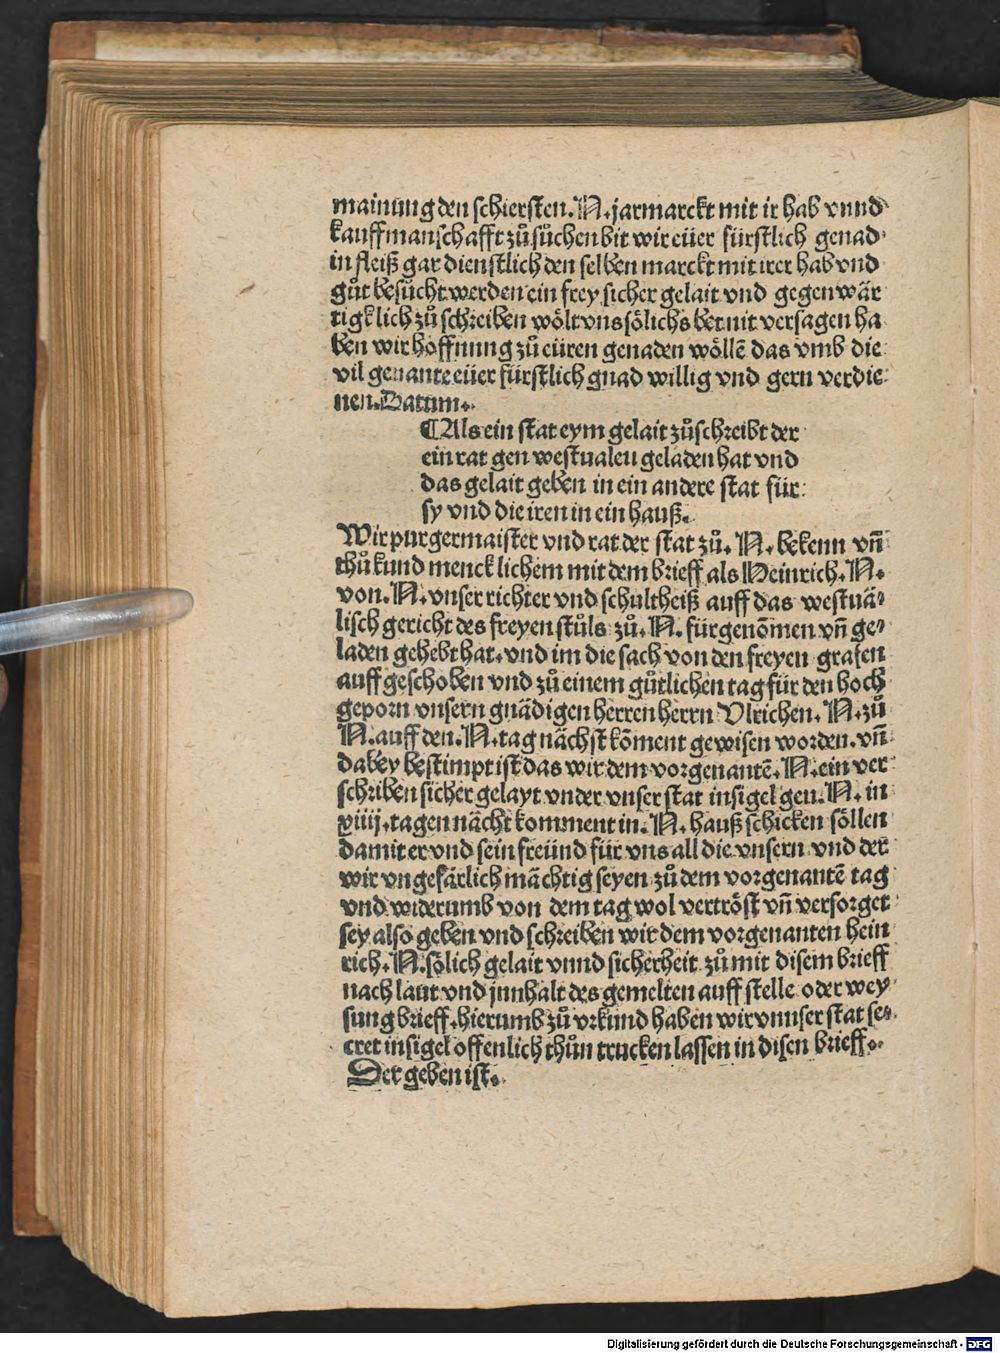 mainung den schiersten. N. jarmarckt mit ir hab vnnd
kauffmanschafft zuͦ suͦchen bit wir eüer fürstlich genad
in fleiß gar dienstlich den selben marckt mit irer hab vnd
guͦt besuͦcht werden ein frey sicher gelait vnd gegenwär
tigklich zuͦ schreiben wölt vns sölichs bet nit versagen ha
ben wir hoffnung zuͦ eüren genaden wöllē das vmb die
vil genante eüer fürstlich gnad willig vnd gern verdie
nen. Datum.
¶ Als ein stat eym gelait zuͦschreibt der
ein rat gen westualen geladen hat vnd
das gelait geben in ein andere stat für
sy vnd die iren in ein hauß.
Wir purgermaister vnd rat der stat zuͦ. N. bekenn vn̄
thuͦ kund mencklichem mit dem brieff als Heinrich. N.
von. N. vnser richter vnd schultheiß auff das westuä⸗
lisch gericht des freyen stuͦls zuͦ. N. fürgenōmen vn̄ ge⸗
laden gehebt hat. vnd im die sach von den freyen grafen
auff geschoben vnd zuͦ einem guͤtlichen tag für den hoch
geporn vnsern gnädigen herren herrn Vlrichen. N. zuͦ
N. auff den. N. tag nächst kōment gewisen worden. vn̄
dabey bestimpt ist das wir dem vorgenantē. N. ein ver
schriben sicher gelayt vnder vnser stat insigel gen. N. in
xiiij. tagen nächt komment in. N. hauß schicken söllen
damit er vnd sein freünd für vns all die vnsern vnd der
wir vngefärlich mächtig seyen zuͦ dem vorgenantē tag
vnd widerumb von dem tag wol vertröst vn̄ versorget
sey also geben vnd schreiben wir dem vorgenanten hein
rich. N. sölich gelait vnnd sicherheit zuͦ mit disem brieff
nach laut vnd jnnhalt des gemelten auff stelle oder wey
sung brieff. hierumb zuͦ vrkund haben wir vnnser stat se⸗
cret insigel offenlich thuͦn trucken lassen in disen brieff.
Der geben ist.
Digitalisierung gefördert durch die Deutsche Forschungsgemeinschaft - DFG